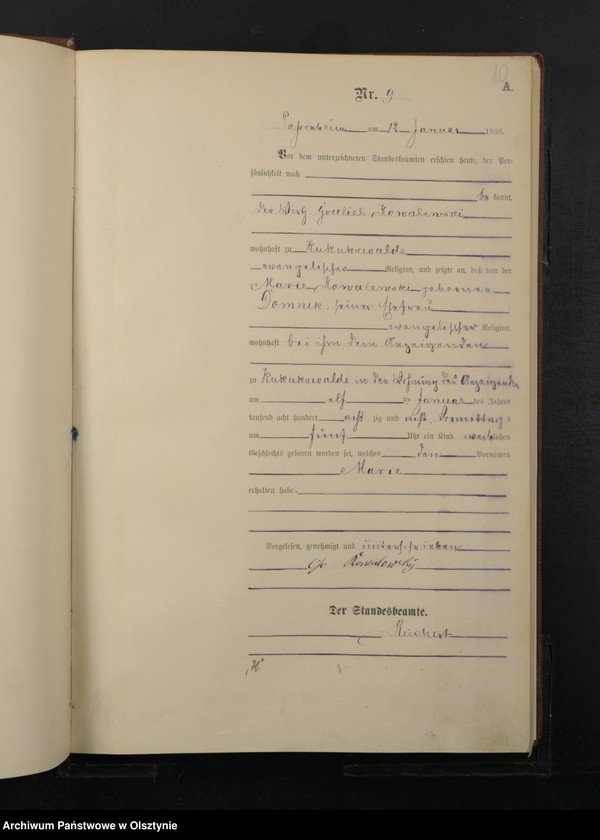 10
A.
Nr. 9
Passenheim am 12 Januar 1888.
Vor dem unterzeichneten Standesbeamten erschien heute, der Per-
sönlichkeit nach
be kannt,
der Wirth Gottlieb Kowalewski
wohnhaft zu Kukukswalde
evangelischer Religion, und zeigte an, daß von der
Marie Kowalewski geborenen
Domnik, seiner Ehefrau
evangelischer Religion,
wohnhaft bei ihm dem Anzeigenden
zu Kukukswalde in der Wohnung des Anzeigenden
am elf ten Januar des Jahres
tausend acht hundert acht zig und acht, Vormittags
um fünf Uhr ein Kind weiblichen
Geschlechts geboren worden sei, welches den Vornamen
Marie
erhalten habe.
Vorgelesen, genehmigt und unterschrieben
Kowalewsky
Der Standesbeamte.
Reichert
Archiwum Państwowe w Olsztynie